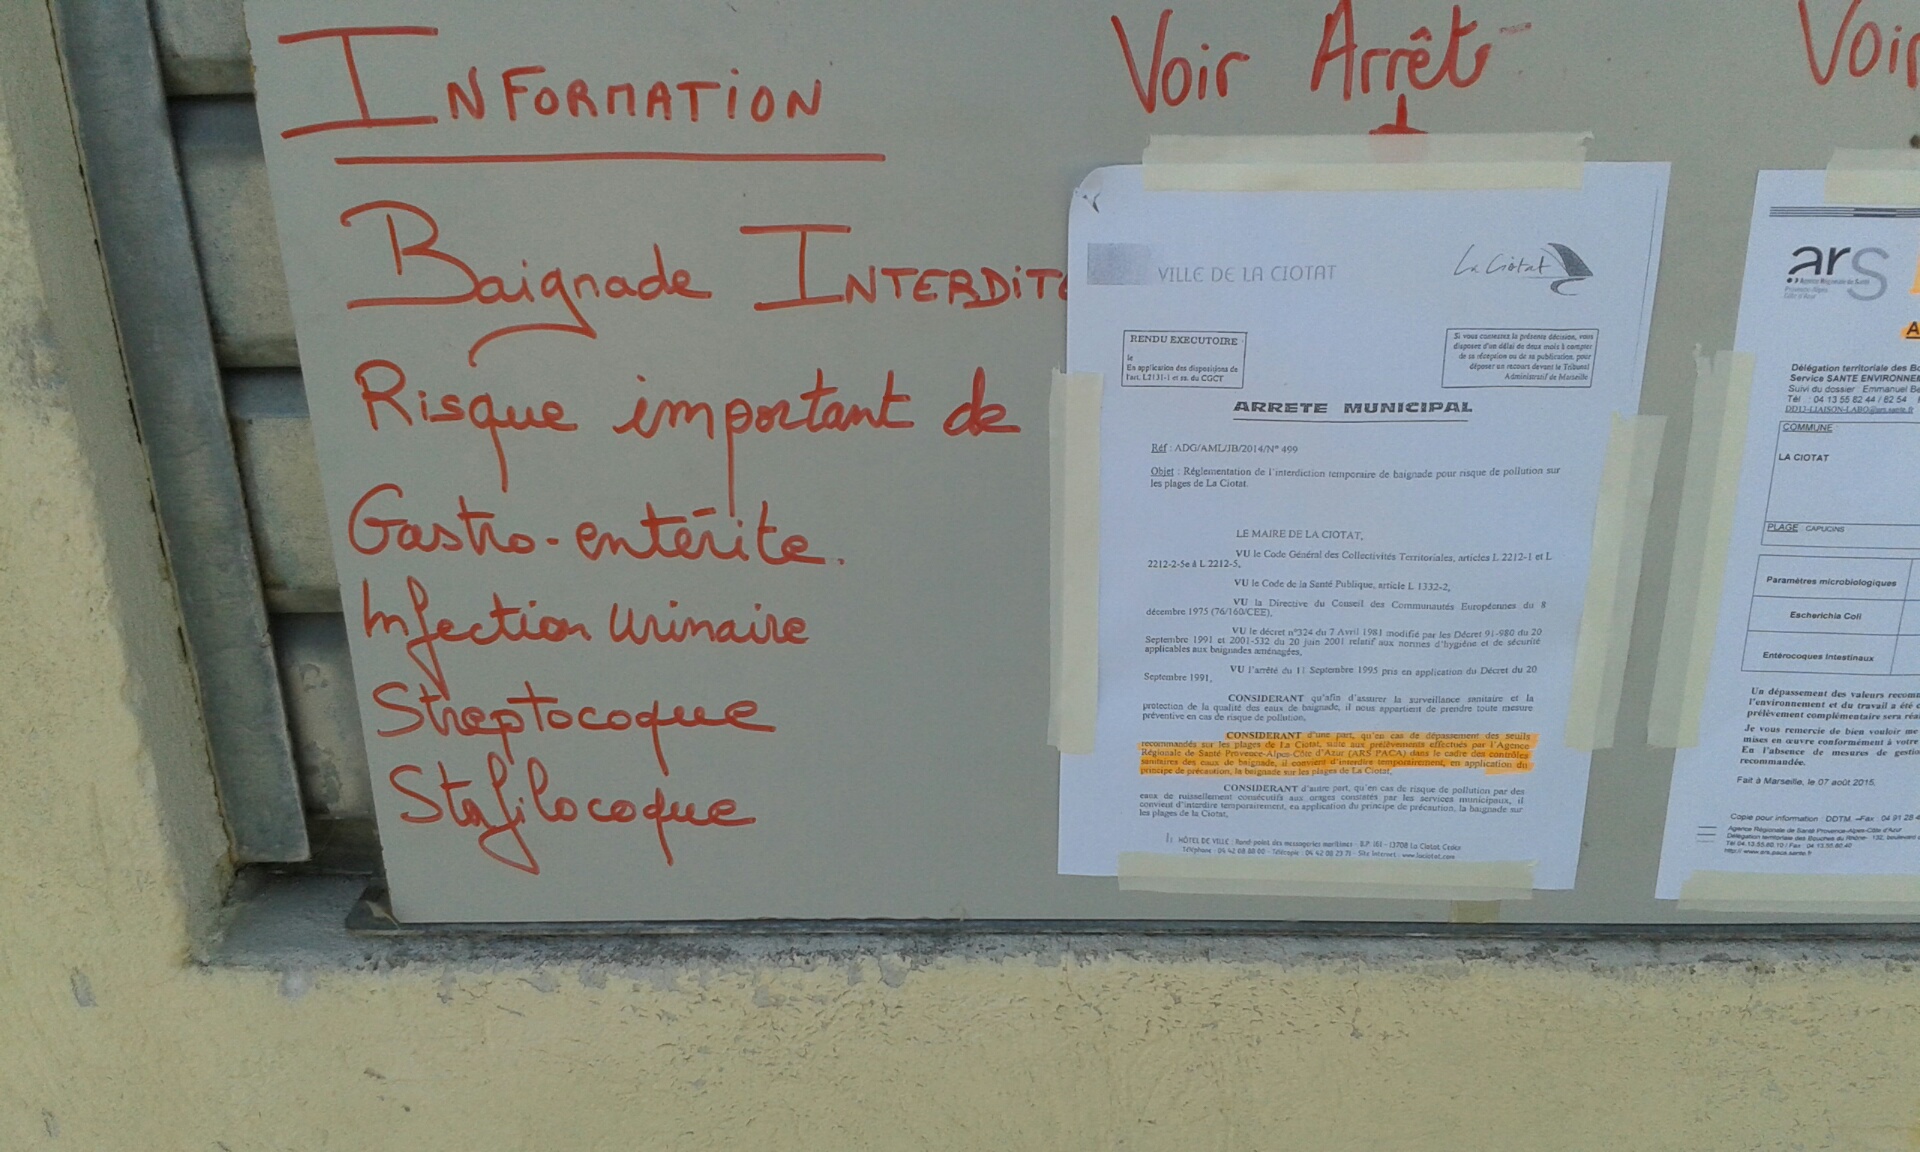 INFORMATION
Baignade INTERDITE
Risque important de
Gastro-entérite.
Infection Urinaire
Streptocoque
Stafilocoque
Voir Arrêté
VILLE DE LA CIOTAT
La Ciotat
RENDU EXECUTOIRE
le
En application des dispositions de
l'art. L2131-1 et ss. du CGCT
Si vous contestez la présente décision, vous
disposez d'un délai de deux mois à compter
de sa réception ou de sa publication, pour
déposer un recours devant le Tribunal
Administratif de Marseille
ARRETE MUNICIPAL
Réf : ADG/AML/JB/2014/N° 499
Objet : Réglementation de l'interdiction temporaire de baignade pour risque de pollution sur
les plages de La Ciotat.
LE MAIRE DE LA CIOTAT,
VU le Code Général des Collectivités Territoriales, articles L 2212-1 et L
2212-2-5e à L 2212-5,
VU le Code de la Santé Publique, article L 1332-2,
VU la Directive du Conseil des Communautés Européennes du 8
décembre 1975 (76/160/CEE),
VU le décret n°324 du 7 Avril 1981 modifié par les Décret 91-980 du 20
Septembre 1991 et 2001-532 du 20 juin 2001 relatif aux normes d'hygiène et de sécurité
applicables aux baignades aménagées,
VU l'arrêté du 11 Septembre 1995 pris en application du Décret du 20
Septembre 1991,
CONSIDERANT qu'afin d'assurer la surveillance sanitaire et la
protection de la qualité des eaux de baignade, il nous appartient de prendre toute mesure
préventive en cas de risque de pollution,
CONSIDERANT d'une part, qu'en cas de dépassement des seuils
recommandés sur les plages de La Ciotat, suite aux prélèvements effectués par l'Agence
Régionale de Santé Provence-Alpes-Côte d'Azur (ARS PACA) dans le cadre des contrôles
sanitaires des eaux de baignade, il convient d'interdire temporairement, en application du
principe de précaution, la baignade sur les plages de La Ciotat,
CONSIDERANT d'autre part, qu'en cas de risque de pollution par des
eaux de ruissellement consécutifs aux orages constatés par les services municipaux, il
convient d'interdire temporairement, en application du principe de précaution, la baignade sur
les plages de La Ciotat,
HÔTEL DE VILLE : Rond-point des messageries maritimes - B.P. 161 - 13708 La Ciotat Cedex
Téléphone : 04 42 08 88 00 - Télécopie : 04 42 08 23 71 - Site Internet : www.laciotat.com
Voir
ars
Agence Régionale de Santé
Provence-Alpes
Côte d'Azur
A
Délégation territoriale des Bo
Service SANTE ENVIRONNEM
Suivi du dossier : Emmanuel Be
Tél : 04 13 55 82 44 / 82 54
DD13-LIAISON-LABO@ars.sante.fr
COMMUNE
LA CIOTAT
PLAGE : CAPUCINS
Paramètres microbiologiques
Escherichia Coli
Entérocoques Intestinaux
Un dépassement des valeurs recomm
l'environnement et du travail a été c
prélèvement complémentaire sera réa
Je vous remercie de bien vouloir me
mises en œuvre conformément à votre
En l'absence de mesures de gesti
recommandée.
Fait à Marseille, le 07 août 2015.
Copie pour information : DDTM. –Fax : 04 91 28 4
Agence Régionale de Santé Provence-Alpes-Côte d'Azur
Délégation territoriale des Bouches du Rhône- 132, boulevard
Tél 04.13.55.80.10 / Fax : 04 13.55.80.40
http:// www.ars.paca.sante.fr